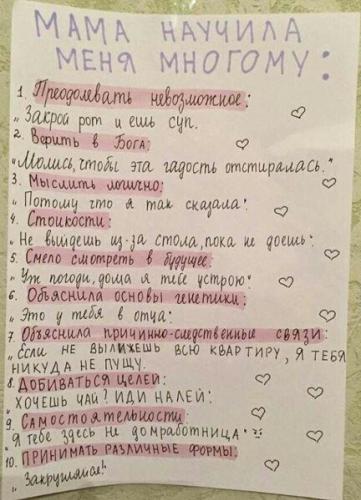 МАМА НАУЧИЛА
МЕНЯ МНОГОМУ:
1. Преодолевать невозможное:
„Закрой рот и ешь суп.
2. Верить в Бога:
„Молись, чтобы эта гадость отстиралась."
3. Мыслить логично:
„Потому что я так сказала".
4. Стойкости:
„Не выйдешь из-за стола, пока не доешь".
5. Смело смотреть в будущее:
„Уж погоди, дома я тебе устрою".
6. Объяснила основы генетики:
„Это у тебя в отца".
7. Объяснила причинно-следственные связи:
„Если не вылижешь всю квартиру, я тебя
никуда не пущу.
8. Добиваться целей:
„Хочешь чай? Иди налей".
9. Самостоятельности:
„Я тебе здесь не домработница"
10. Принимать различные формы:
„Закругляйся!"